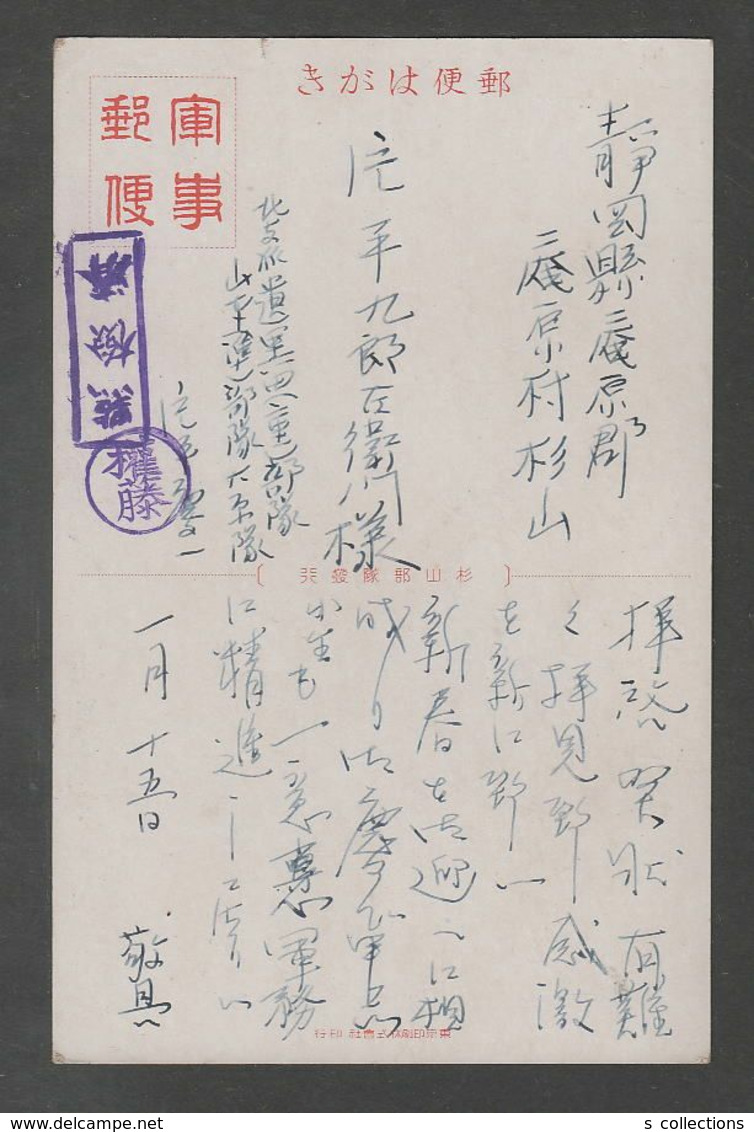 郵便はがき
軍事
郵便
靜岡縣庵原郡
庵原村杉山
片平九郎左衛門様
北支派遣黒田重部隊
山本達部隊大原隊
片平 一
點檢済
權藤
〔杉山部隊發行〕
拝啓 賀状有難
く拝見致し感激
を新に致し
新春を御迎へに相
成り御慶び申上
小生も一意専心軍務
に精進致し居り
一月十五日
敬具
東京印刷株式會社印行